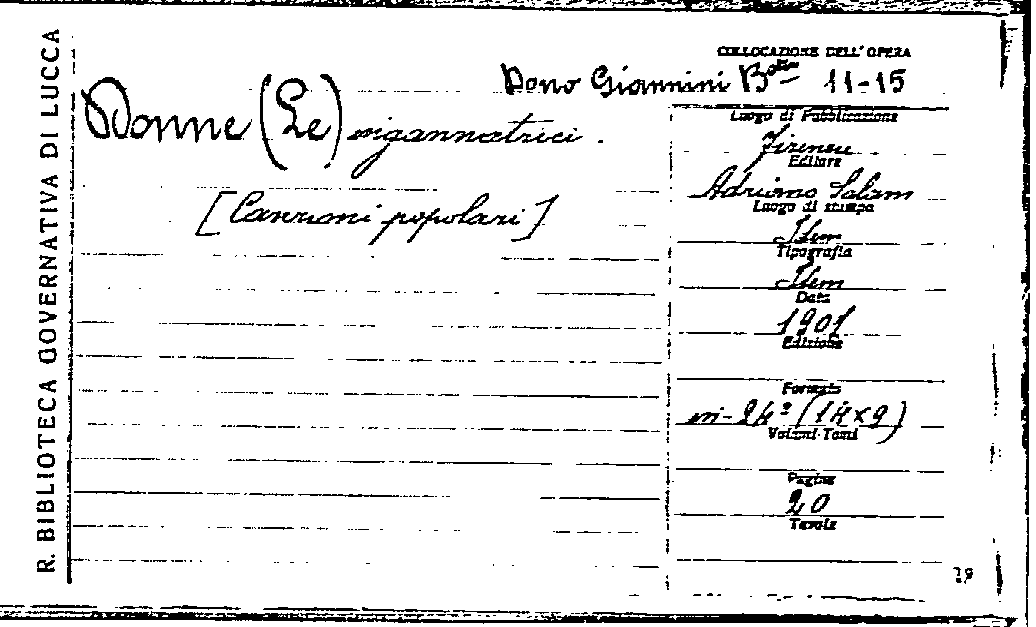 R. BIBLIOTECA GOVERNATIVA DI LUCCA
COLLOCAZIONE DELL'OPERA
Dono Giannini B 11-15
Donne (Le) ingannatrici.
[Canzoni popolari]
Luogo di Pubblicazione
Firenze
Editore
Adriano Salani
Luogo di stampa
Idem
Tipografia
Idem
Data
1901
Edizione
Formato
in-24º (14x9)
Volumi-Tomi
Pagine
20
Tavole
19